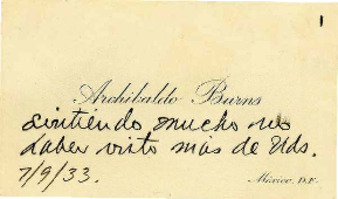 1
Archibaldo Burns
Sintiendo mucho no
haber visto mas de Uds.
7/9/33.
México, D.F.